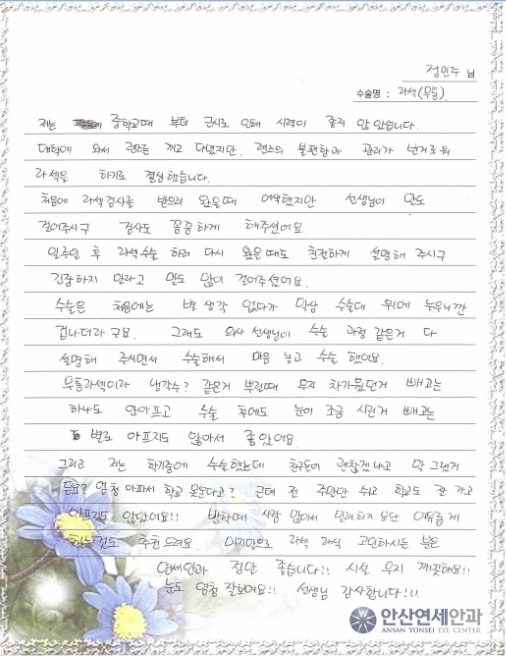 정민주 님
수술명 : 라섹(무통)
저는 중학교때 부터 근시로 인해 시력이 좋지 않았습니다.
대학에 와서 렌즈를 끼고 다녔지만, 렌즈의 불편함과 관리가 번거로워
라섹을 하기로 결심했습니다.
처음에 라섹검사를 받으러 왔을때 어색했지만 선생님이 말도
걸어주시구 검사도 꼼꼼하게 해주셨어요
일주일 후 라섹수술 하러 다시 왔을때도 친절하게 설명해 주시구
긴장하지 말라고 말도 많이 걸어주셨어요.
수술은 처음에는 별 생각 없다가 막상 수술대 위에 누우니깐
겁나더라구요. 그래도 의사 선생님이 수술 과정 같은거 다
설명해 주시면서 수술해서 마음 놓고 수술 했어요.
무통라섹이라 냉각수? 같은거 뿌릴때 무지 차가웠던거 빼고는
하나도 안아프고 수술 후에도 눈이 조금 시린거 빼고는
별로 아프지도 않아서 좋았어요.
그리고 저는 학기중에 수술했는데 친구들이 괜찮겠냐고 막 그랬거
든요? 엄청 아파서 학교 못온다고? 근데 전 주말만 쉬고 학교도 잘 가고
아프지도 않았어요!! 방학때 사람 많아서 하기 보단 여유롭게
하는것도 추천 드려요 마지막으로 라섹 라식 고민하시는 분은
연세안과 정말 좋습니다!! 시설 무지 깨끗해요!!
눈도 엄청 잘보여요!! 선생님 감사합니다!!!
안산연세안과
ANSAN YONSEI EYE CENTER